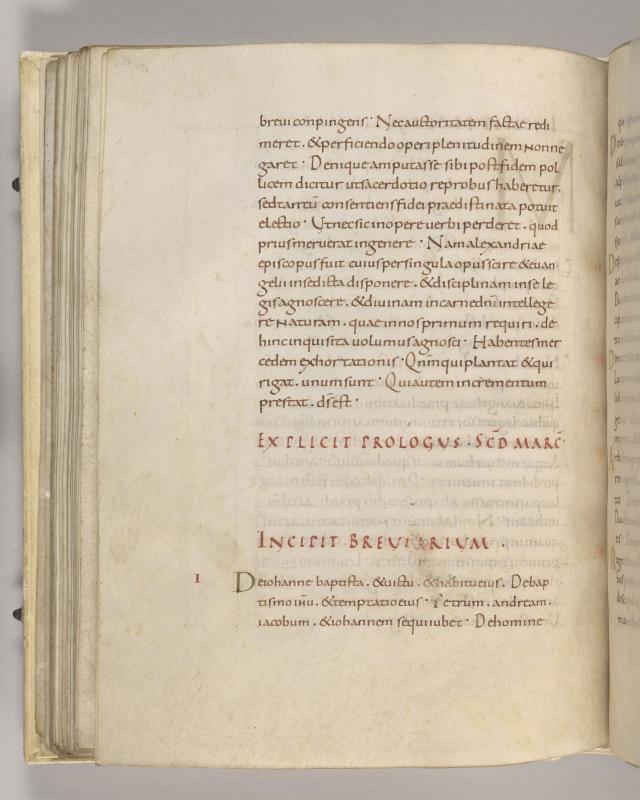 breui conpingens · Nec auctoritatem factae redi
meret . & perficiendo operi plenitudinem non ne
garet · Denique amputasse sibi post fidem pol
licem dicitur ut sacerdotio reprobus haberetur.
sed tantū consentiens fidei praedistinata potuit
electio · Ut nec sic in opere uerbi perderet . quod
prius meruerat in genere · Nam alexandriae
episcopus fuit cuius per singula opus scire & euan
gelii in se dicta disponere . & disciplinam in se le
gis agnoscere . & diuinam in carne dn̄i intellege
re naturam . quae in nos primum requiri . de
hinc inquisita uolumus agnosci · Habentes mer
cedem exhortationis · Qnm̄ qui plantat & qui
rigat . unum sunt · Qui autem incrementum
prestat . ds̄ est ·
EXPLICIT PROLOGUS . SCD̄ MARC̄
INCIPIT BREUIARIUM .
I De iohanne baptista . & uictu . & habitu eius . De bap
tismo ih̄u . & temptatio eius · Petrum . andream .
iacobum . & iohannem sequi iubet · De homine